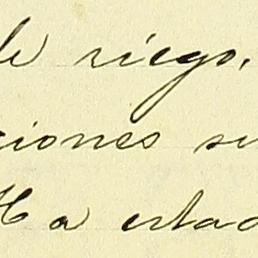 de riego.
ciones su
Ha estad